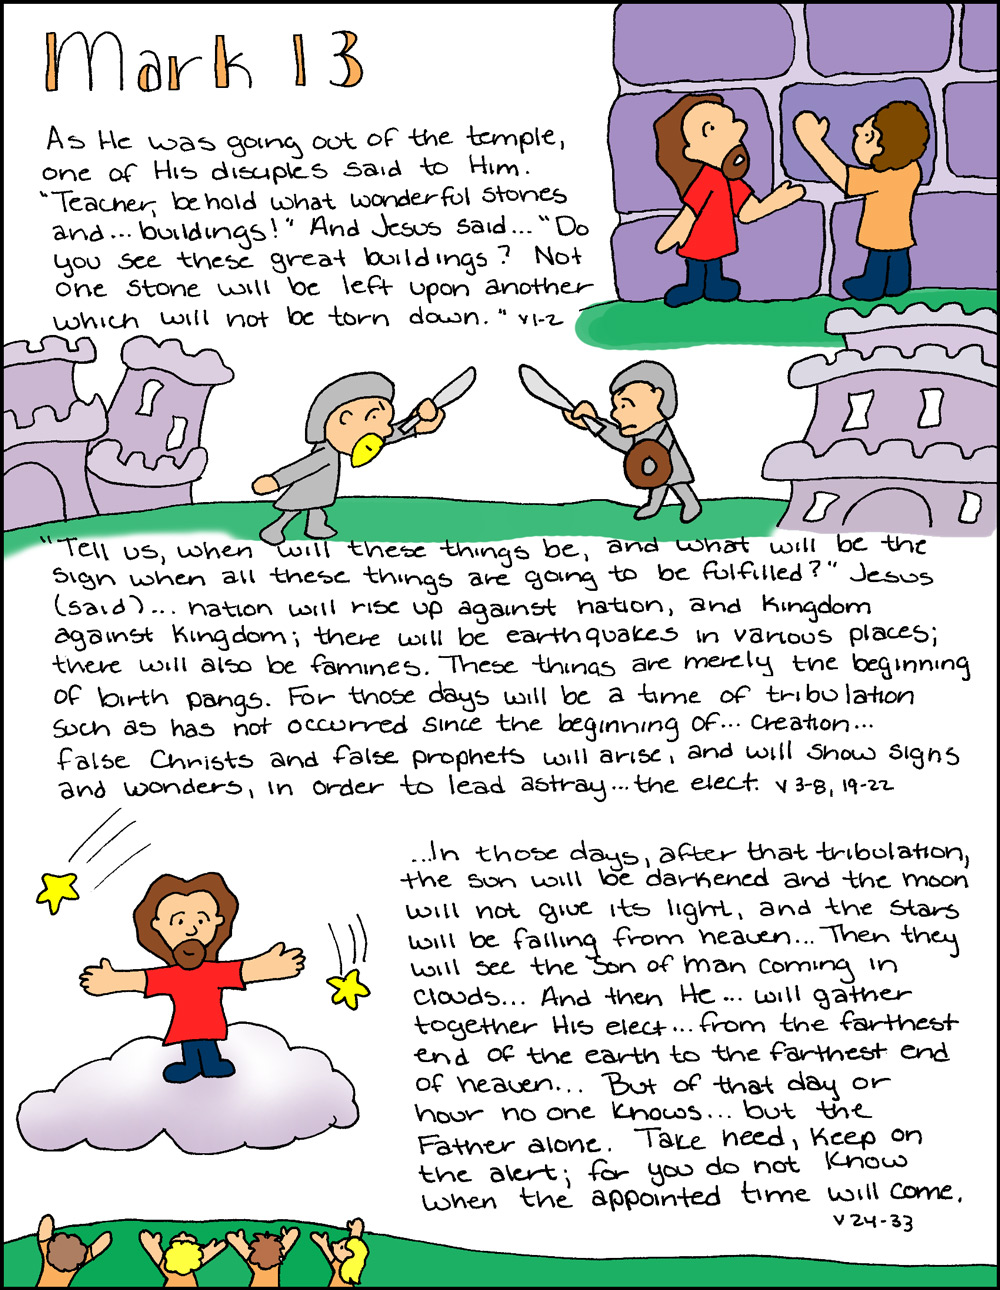 Mark 13
As He was going out of the temple,
one of His disciples said to Him.
"Teacher, behold what wonderful stones
and... buildings!" And Jesus said... "Do
you see these great buildings? Not
one stone will be left upon another
which will not be torn down." v1-2
"Tell us, when will these things be, and what will be the
sign when all these things are going to be fulfilled?" Jesus
(said)... nation will rise up against nation, and kingdom
against kingdom; there will be earthquakes in various places;
there will also be famines. These things are merely the beginning
of birth pangs. For those days will be a time of tribulation
such as has not occurred since the beginning of... creation...
false Christs and false prophets will arise, and will show signs
and wonders, in order to lead astray... the elect. v 3-8, 19-22
...In those days, after that tribulation,
the sun will be darkened and the moon
will not give its light, and the stars
will be falling from heaven... Then they
will see the Son of Man coming in
clouds... And then He... will gather
together His elect... from the farthest
end of the earth to the farthest end
of heaven... But of that day or
hour no one knows... but the
Father alone. Take heed, keep on
the alert; for you do not know
when the appointed time will come.
v 24-33